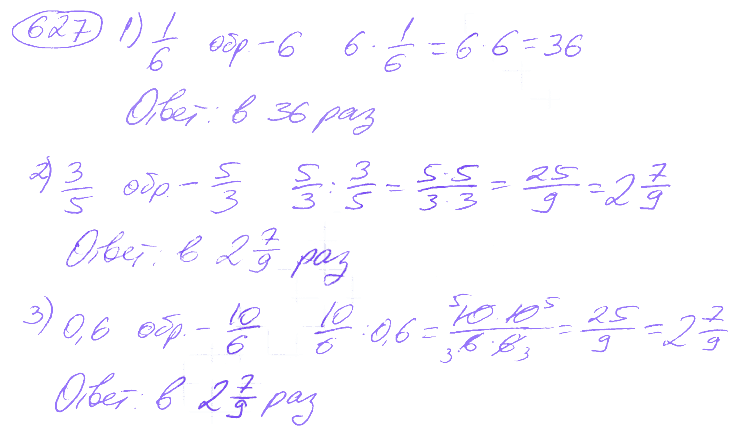 627 1) 1/6 обр. – 6 6 · 1/6 = 6 · 6 = 36
Ответ: в 36 раз
2) 3/5 обр. – 5/3 5/3 : 3/5 = 5·5/3·3 = 25/9 = 2 7/9
Ответ: в 2 7/9 раз
3) 0,6 обр. – 10/6 10/6 · 0,6 = ⁵10 · 10⁵/₃6 · 6₃ = 25/9 = 2 7/9
Ответ: в 2 7/9 раз